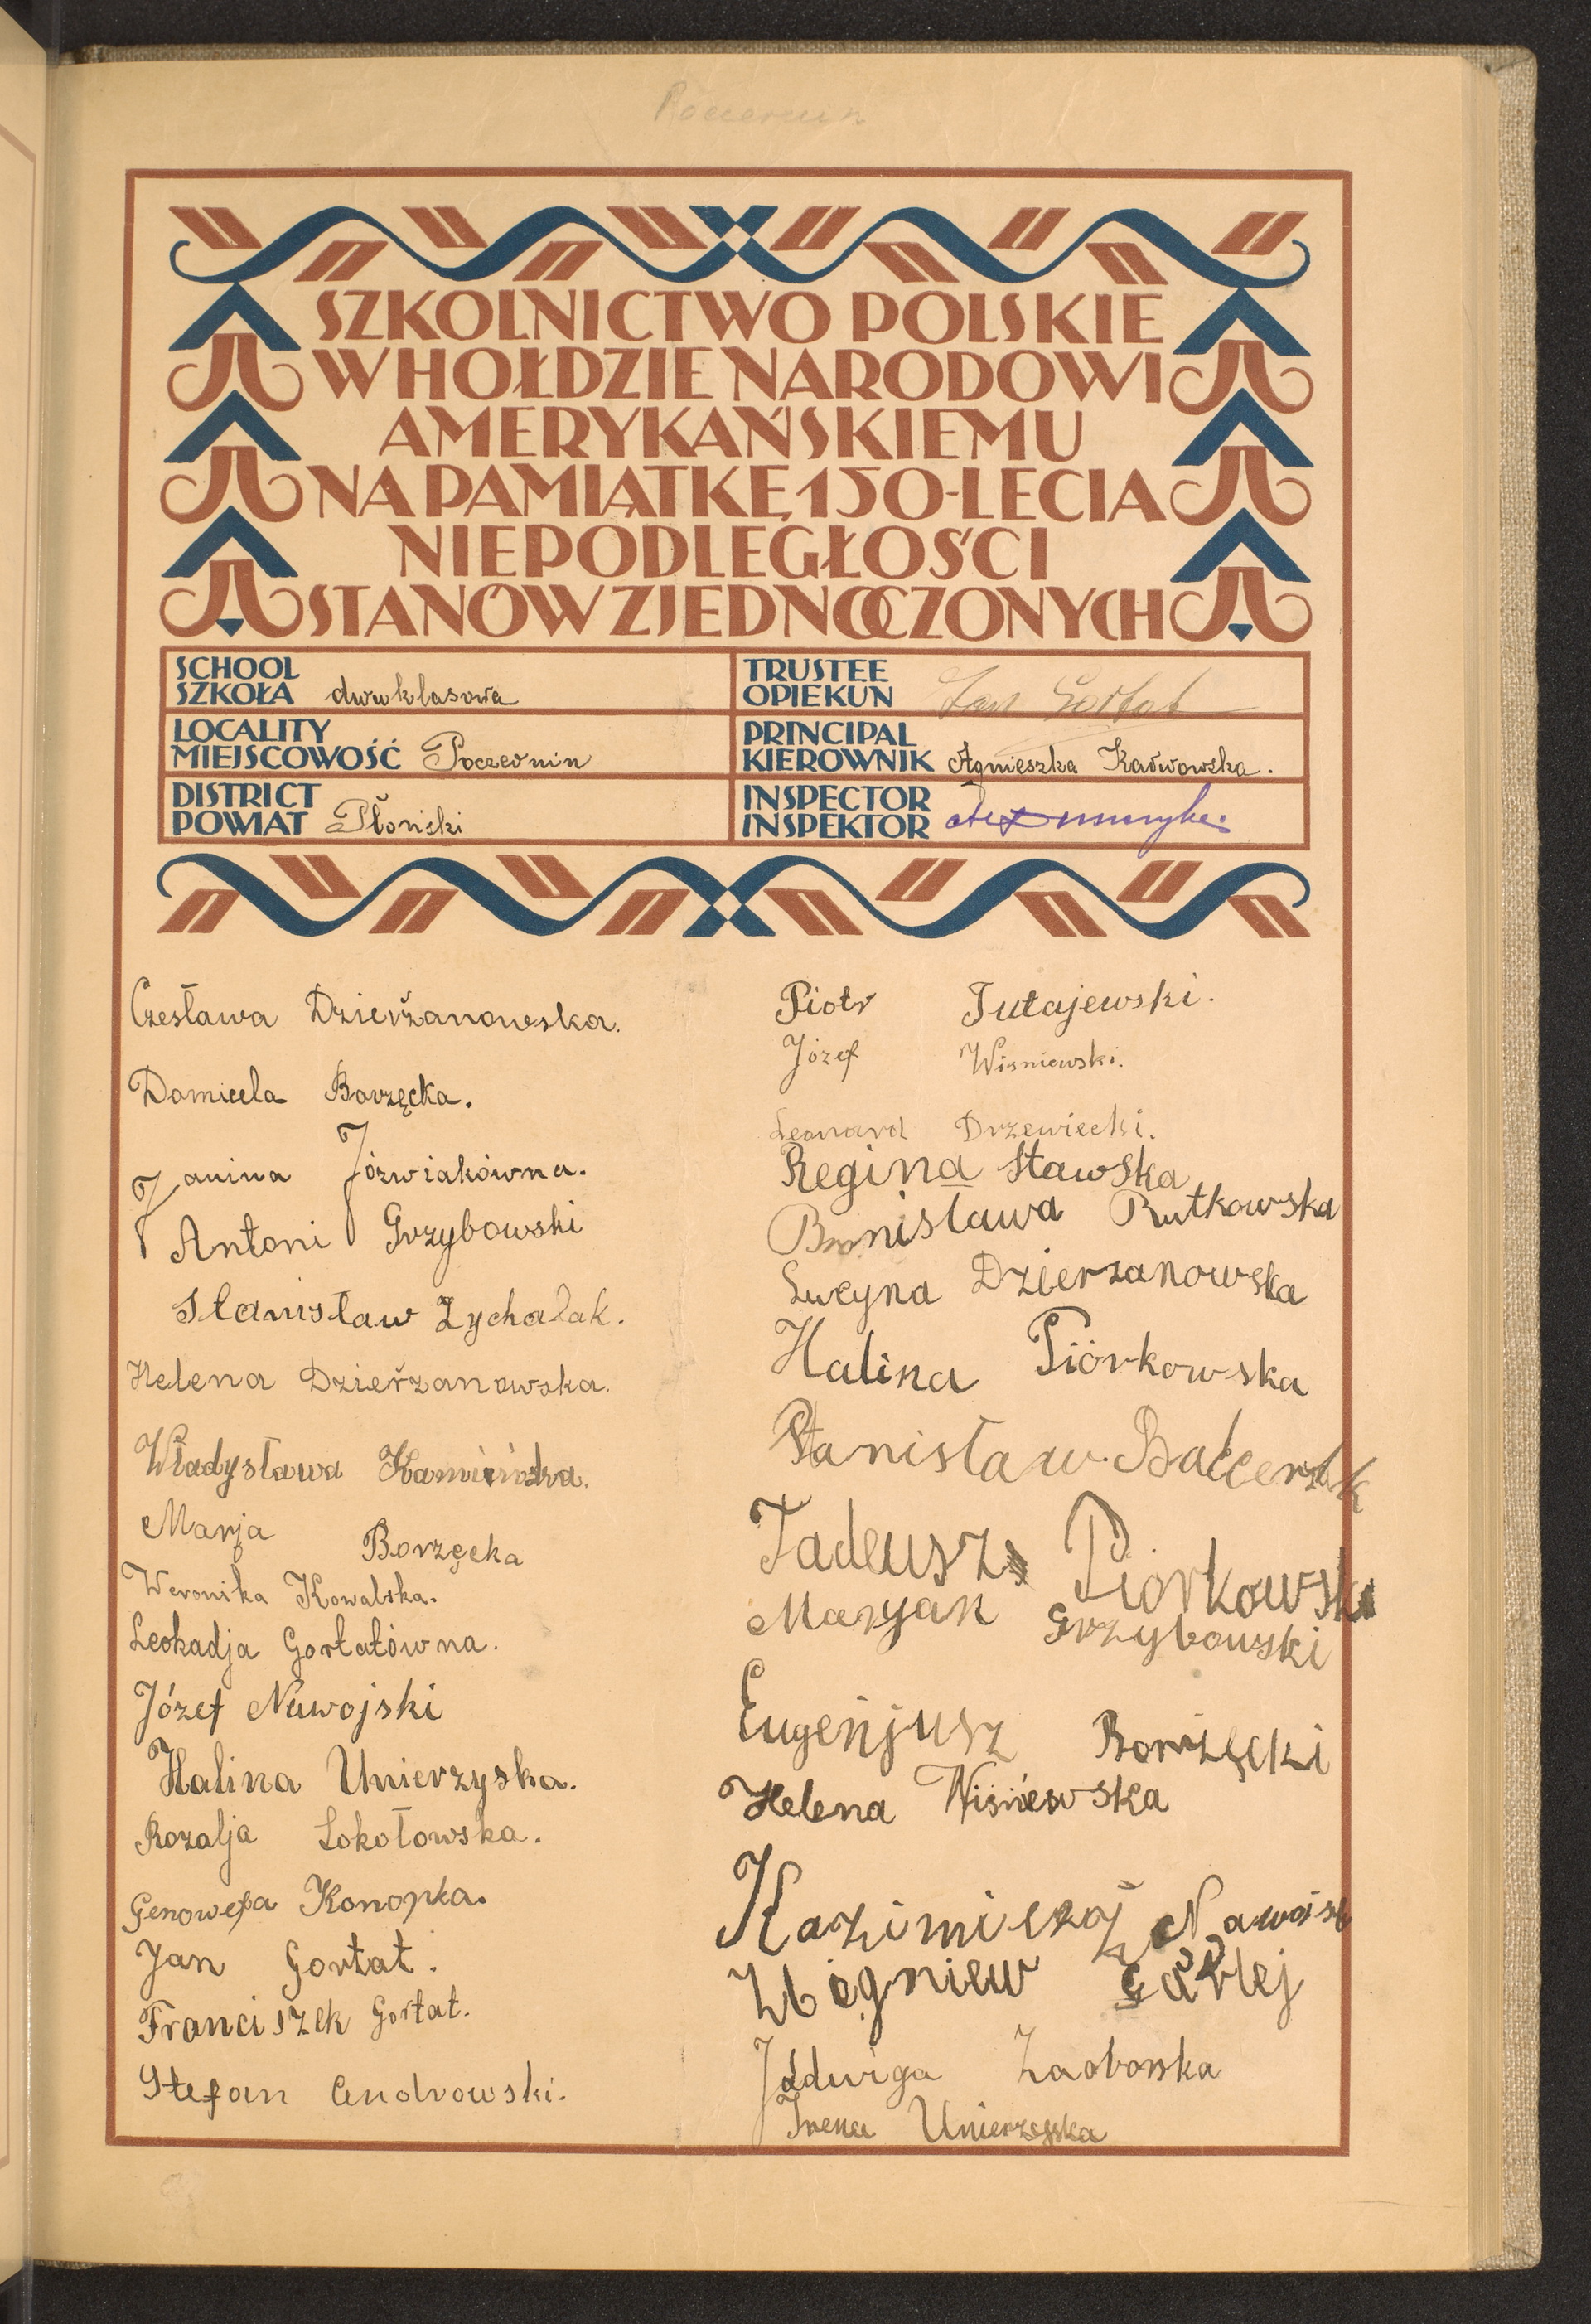 SZKOLNICTWO POLSKIE
W HOŁDZIE NARODOWI
AMERYKAŃSKIEMU
NA PAMIĄTKĘ 150-LECIA
NIEPODLEGŁOŚCI
STANÓW ZJEDNOCZONYCH
SCHOOL
SZKOŁA dwuklasowa
TRUSTEE
OPIEKUN Jan Gortat
LOCALITY
MIEJSCOWOŚĆ Poczernin
PRINCIPAL
KIEROWNIK Agnieszka
DISTRICT
POWIAT Płoński
INSPECTOR
INSPEKTOR
Czesława Dzierżanowska.
Domicela Borzęcka.
Janina Józwiakówna.
Antoni Grzybowski
Stanisław Zychalak.
Helena Dzierżanowska.
Władysława Kamińska.
Marja Borzęcka
Weronika Kowalska.
Leokadja Gortatówna.
Józef Nawojski
Halina Unierzyska.
Rozalja Sokołowska.
Genowefa Konopka.
Jan Gortat.
Franciszek Gortat.
Stefan Androwski.
Piotr Tutajewski.
Józef Wisniewski.
Leonard Drzewiecki.
Regina Stawska
Bronisława Rutkowska
Lucyna Dzierzanowska
Halina Piórkowska
Stanisław Balcerzak
Tadeusz Piorkowski
Maryan Grzybowski
Eugenjusz Borzęcki
Helena Wiśniewska
Kazimierz Nawojsk
Zbigniew
Jadwiga Zaborska
Irena Unierzyska